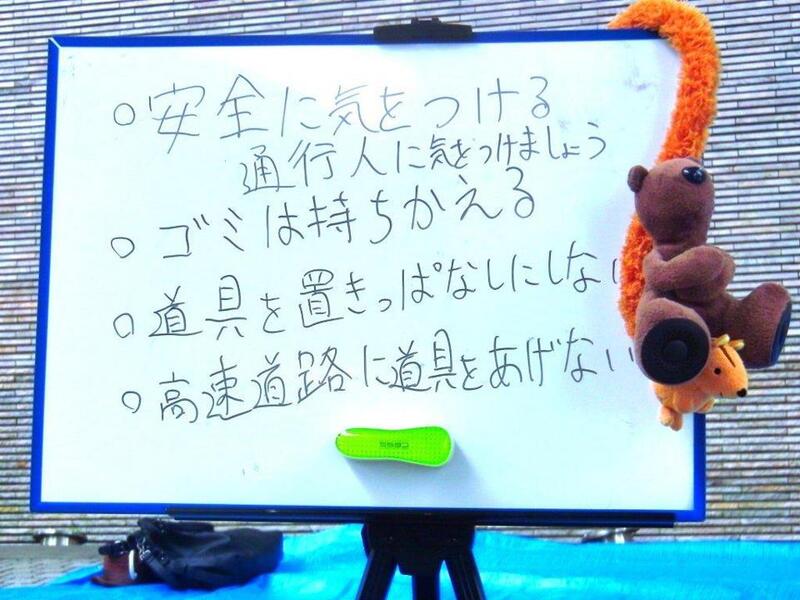 ○ 安全に気をつける
通行人に気をつけましょう
○ ゴミは持ちかえる
○ 道具を置きっぱなしにしない
○ 高速道路に道具をあげない